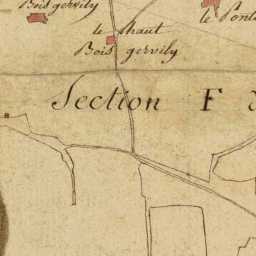 Bois gervily
le Pont
le haut
Bois gervily
Section F